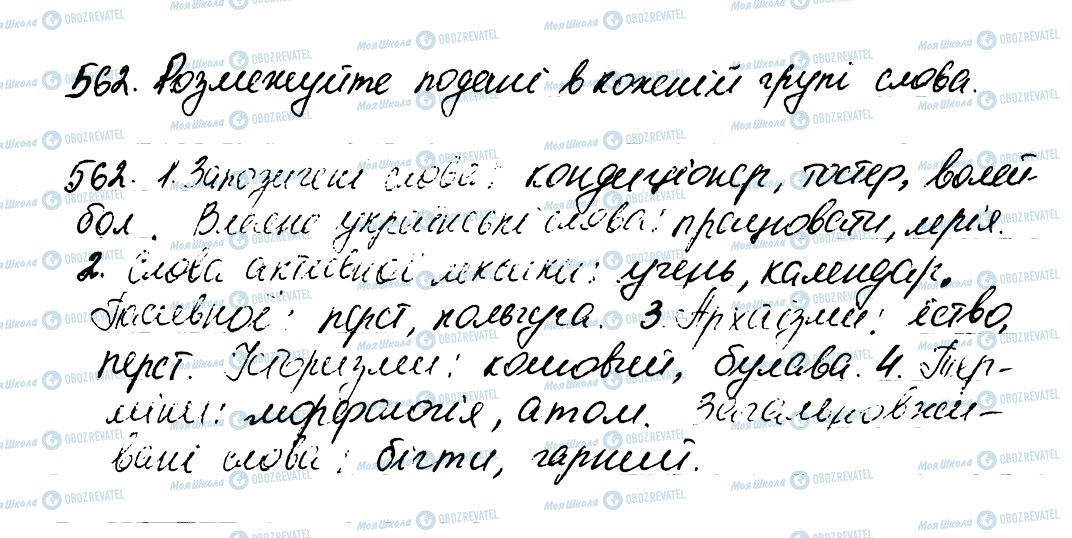 562. Розмежуйте подані в кожній групі слова.
562. 1. Запозичені слова: кондиціонер, тостер, волей-
бол. Власне українські слова: працювати, мрія.
2. Слова активної лексики: учень, календар.
Пасивної: перст, кольчуга. 3. Архаїзми: їство,
перст. Історизми: кошовий, булава. 4. Тер-
міни: морфологія, атом. Загальновжи-
вані слова: бігти, гарний.